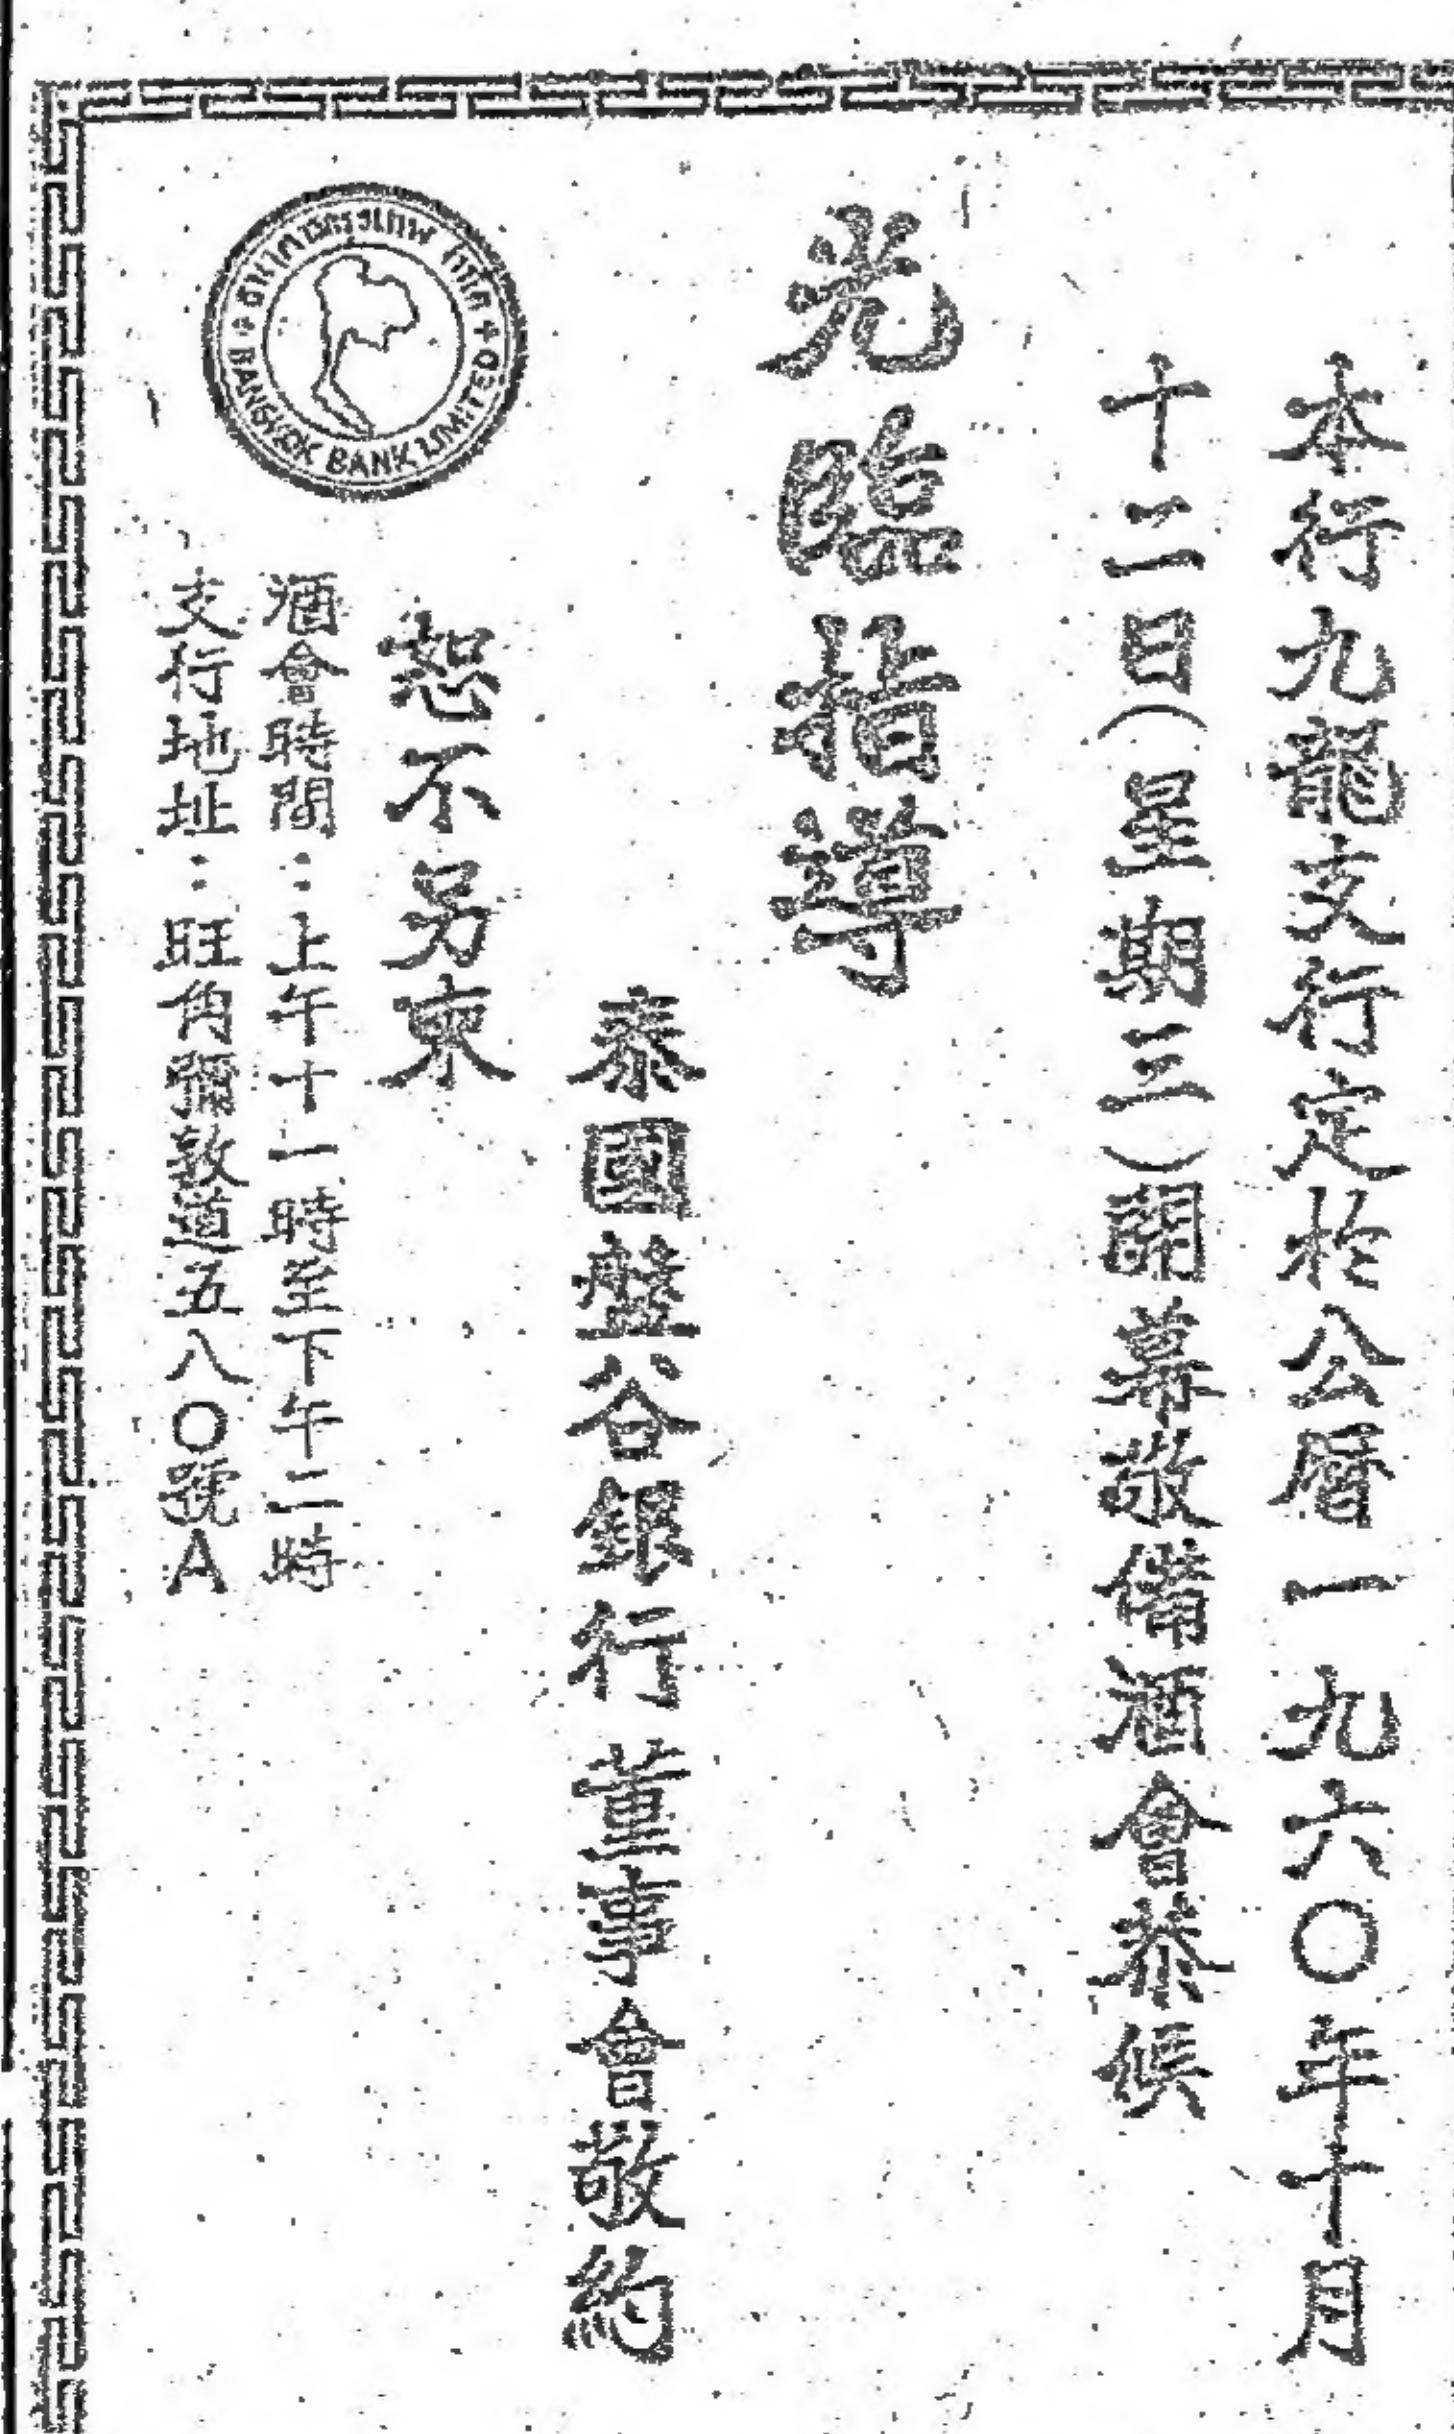 本行九龍支行定於公曆一九六〇年十月
十二日(星期三)開幕敬備酒會恭候
光臨指導
泰國盤谷銀行董事會敬約
恕不另柬
酒會時間：上午十一時至下午二時
支行地址：旺角彌敦道五八〇號A
ธนาคารกรุงเทพ จำกัด
BANGKOK BANK LIMITED